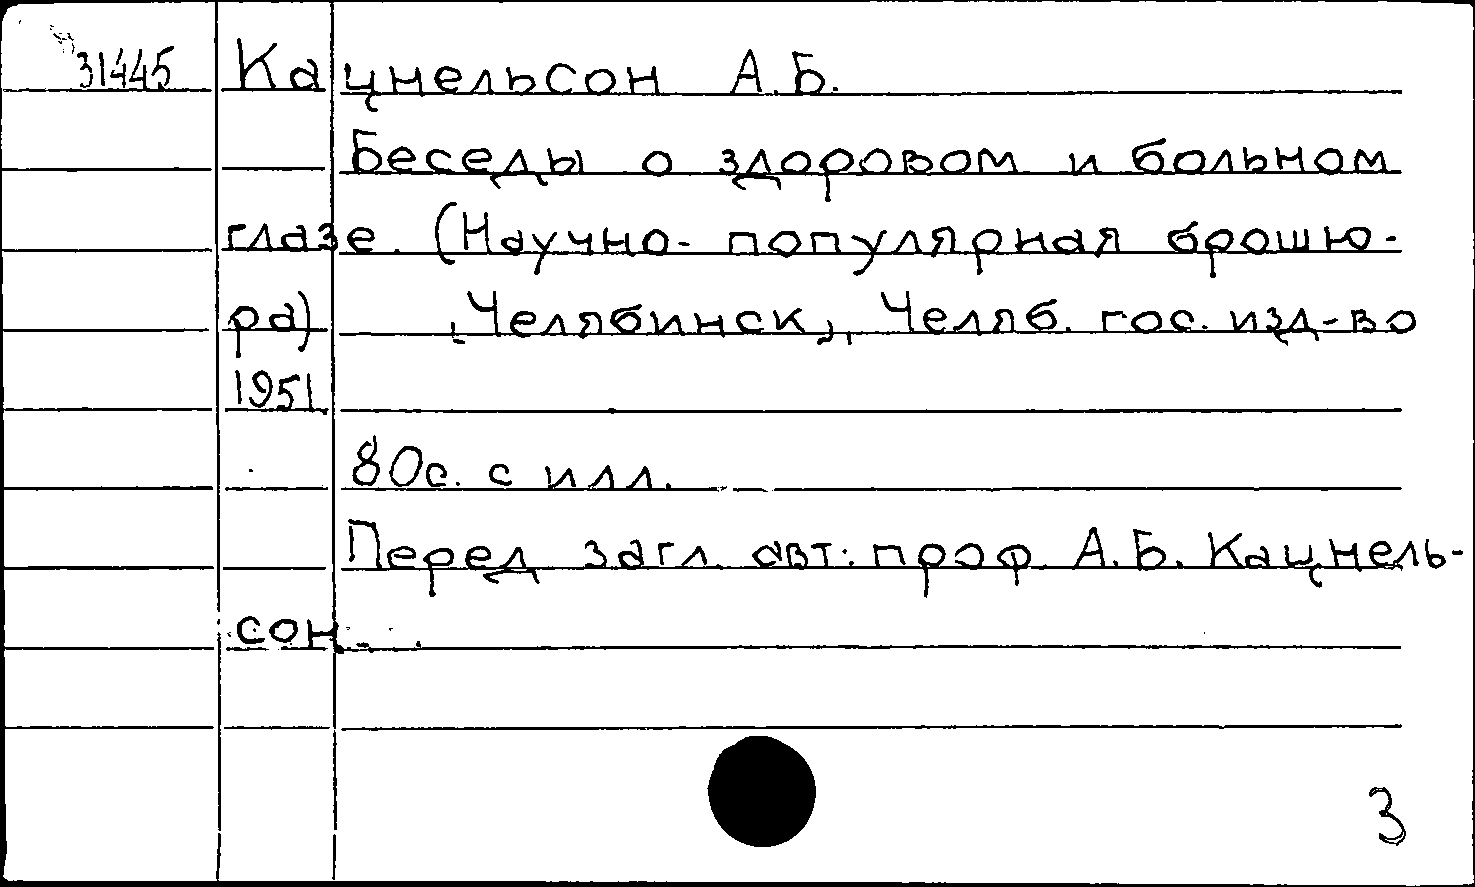 31445 Кацнельсон А.Б.
Беседы о здоровом и больном
глазе. (Научно-популярная брошю-
ра) [Челябинск], Челяб. гос. изд-во
1951
80с. с илл.
Перед загл. авт: проф. А.Б. Кацнель-
сон.
3